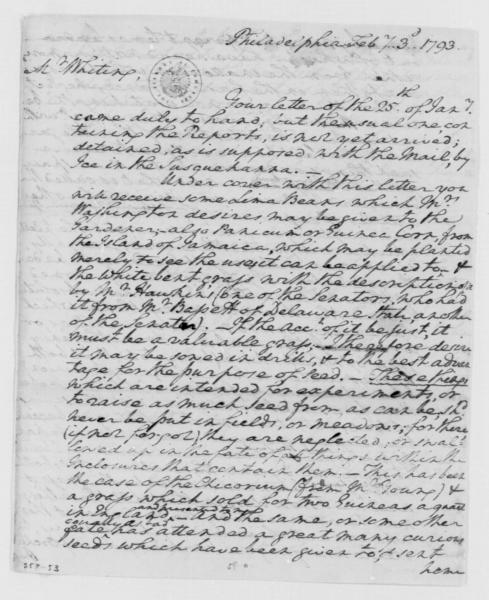 Philadelphia Feby. 3d. 1793.
Mr. Whiting,
Your letter of the 25th of Jany.
came duly to hand, but the usual one, con
taining the Reports, is not yet arrived;
detained, as is supposed with the Mail, by
Ice in the Susquehanna. —
Under cover with this letter you
will receive some Lima Beans which Mrs.
Washington desires may be given to the
Gardener; also Panicum or Guinea Corn from
the Island of Jamaica, which may be planted
merely to see the uses it can be applied to. — &
the white bent grass with the description
by Mr. Hawkins (one of the Senators, who had
it from Mr. Basset of Delaware State another
of the Senate). — If the acct. of it be just, it
must be a valuable grass; — I therefore desire
it may be sowed in drills, & to the best advan
tage for the purpose of seed. — These things
which are intended for experiments, or
to raise as much seed from as can be, shd.
never be put in fields, or meadows; for there
(if not forgot) they are neglected; or swal-
lowed up in the fate of all things within the
Enclosures that contain them. — This has been
the case of the Chicorium (from Mr. Young) &
a grass which sold for two Guineas a quart
in England and presented to me — And the same, or some other
fate equally as bad has attended a great many curious
seeds which have been given to, & sent
home